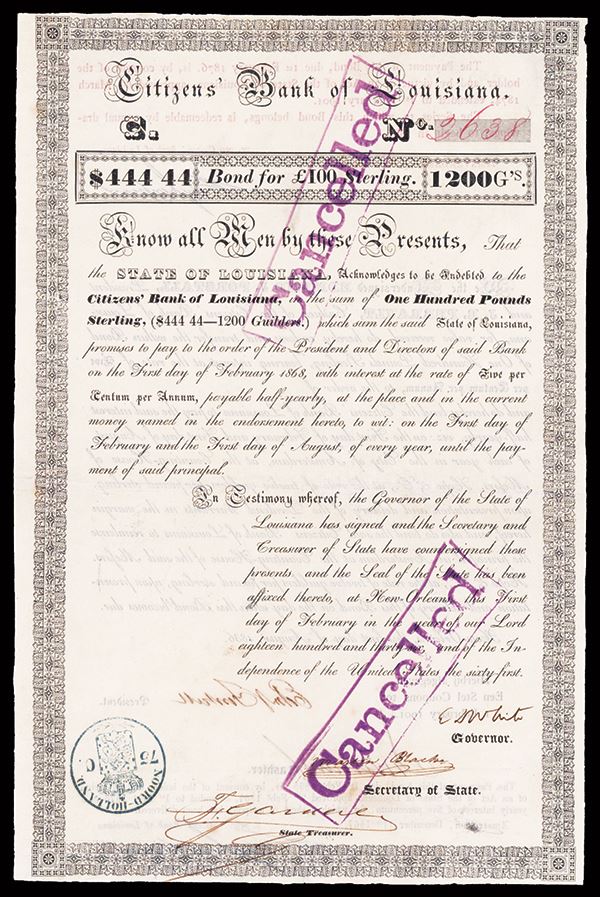 Citizens' Bank of Louisiana.
S. No. 2638
$444 44 Bond for £100 Sterling. 1200 G'S.
Know all Men by these Presents, That
the STATE OF LOUISIANA, Acknowledges to be Indebted to the
Citizens' Bank of Louisiana, in the sum of One Hundred Pounds
Sterling, ($444 44—1200 Guilders.) which sum the said State of Louisiana,
promises to pay to the order of the President and Directors of said Bank
on the First day of February 1868, with interest at the rate of Five per
Centum per Annum, payable half-yearly, at the place and in the current
money named in the endorsement hereto, to wit: on the First day of
February and the First day of August, of every year, until the pay-
ment of said principal.
In Testimony whereof, the Governor of the State of
Louisiana has signed and the Secretary and
Treasurer of State have countersigned these
presents and the Seal of the State has been
affixed thereto, at New-Orleans, this First
day of February in the year of our Lord
eighteen hundred and thirty-six and of the In-
dependence of the United States the sixty-first.
E D White
Governor.
Martin Blache
Secretary of State.
State Treasurer.
Cancelled
Cancelled
75 C
NOORD-HOLLAND.